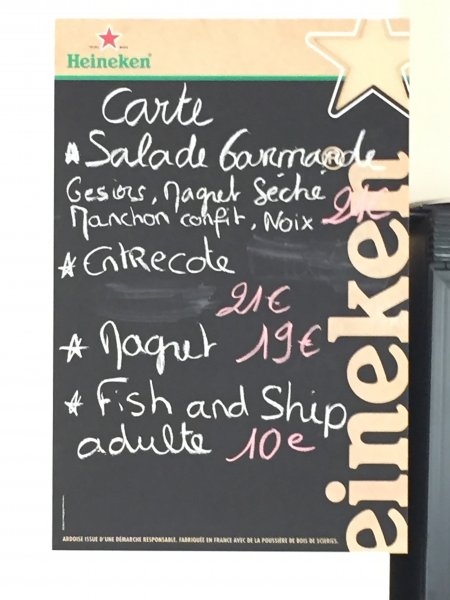 Heineken
Carte
Salade Gourmande
Gesiers, Magret Séché
Manchon confit, Noix
Entrecote
21€
Magret 19€
Fish and Ship
adulte 10e
eineken
ARDOISE ISSUE D'UNE DÉMARCHE RESPONSABLE. FABRIQUÉE EN FRANCE AVEC DE LA POUSSIÈRE DE BOIS DE SCIERIES.